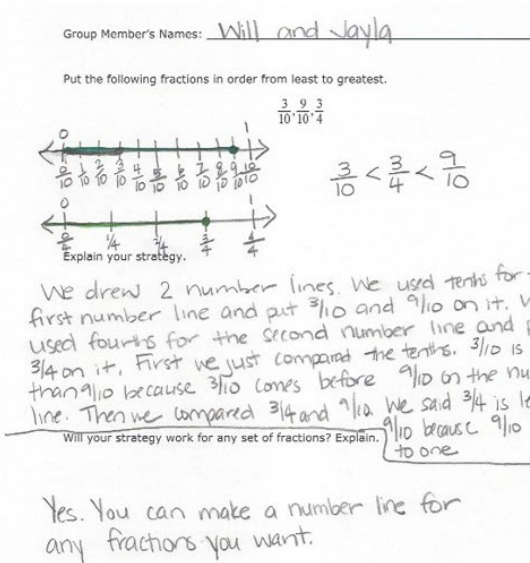 Group Member's Names: Will and Jayla
Put the following fractions in order from least to greatest.
3/10, 9/10, 3/4
0 1
0/10 1/10 2/10 3/10 4/10 5/10 6/10 7/10 8/10 9/10 10/10
3/10 < 3/4 < 9/10
0 1
0/4 1/4 2/4 3/4 4/4
Explain your strategy.
We drew 2 number lines. We used tenths for
first number line and put 3/10 and 9/10 on it.
used fourths for the second number line and
3/4 on it. First we just compared the tenths. 3/10 is
than 9/10 because 3/10 comes before 9/10 on the nu
line. Then we compared 3/4 and 9/10. We said 3/4 is le
9/10 because 9/10
to one
Will your strategy work for any set of fractions? Explain.
Yes. You can make a number line for
any fractions you want.